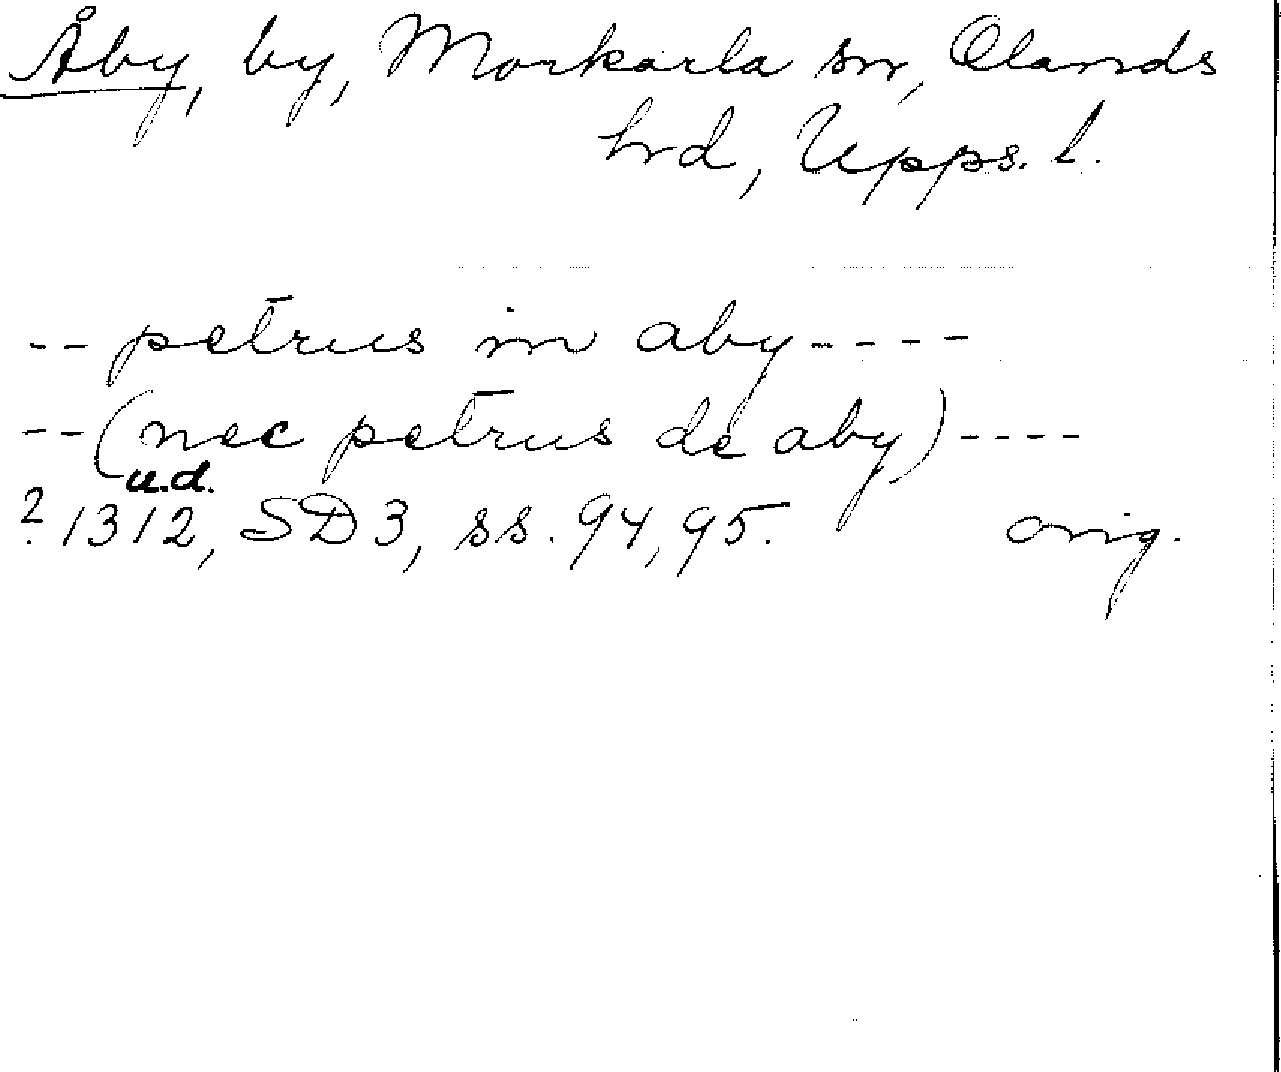 Åby, by, Morkarla sn, Olands
hrd, Upps. l.
-- petrus in aby ----
-- (nec petrus de aby) ----
u.d.
? 1312, SD 3, ss. 94, 95. orig.